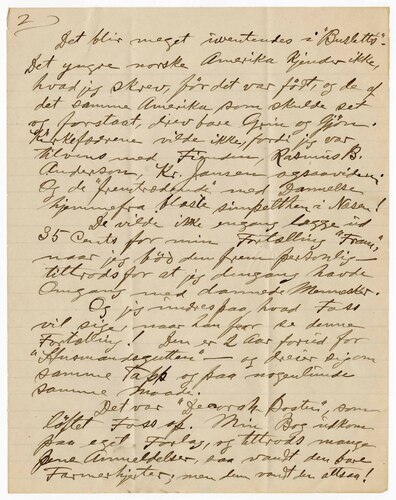 2
Det blir meget iventendes i "Buslett's".
Det yngre norske Amerika kjender ikke,
hvad jeg skrev, før det var født, og de af
det samme Amerika som skulde set
og forstaat, drev bare Grin og Gjøn.
Kirkefædrene vilde ikke, fordi jeg var
tilvens med Fienden, Rasmus B.
Anderson, Kr. Janson ogsaavidere.
Og de "fremtrædende" med Dannelse
hjemmefra blaste simpelthen i Næsen!
De vilde ikke engang lægge ud
35 Cents for min Fortælling "Fram",
naar jeg bød den frem personlig –
tiltrods for at jeg dengang havde
Omgang med dannede Mennesker.
Og jeg undres paa, hvad Foss
vil sige, naar han faar se denne
Fortælling! Den er 2 Aar forud for
"Husmandsgutten" – og dreier sig om
samme Tapp og paa nogenlunde
samme Maade.
Det var "Decorah Posten" som
løftet Foss op. Min Bog udkom
paa eget Forlag, og tiltrods mange
pene Anmeldelser, saa vandt den bare
Farmerhjerter, men dem vandt den altsaa!